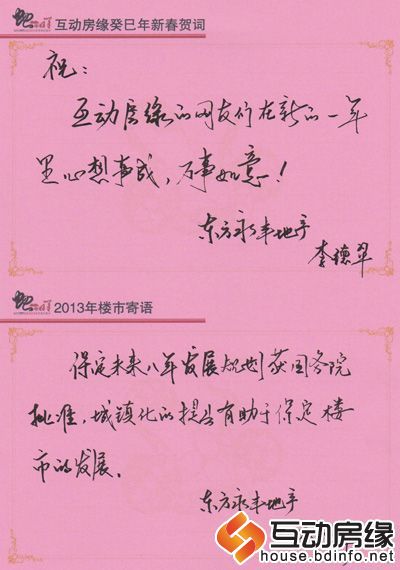 互动房缘癸巳年新春贺词
祝：
互动房缘的网友们在新的一年
里心想事成，万事如意！
东方永丰地产
李德翠
2013年楼市寄语
保定未来八年发展规划获国务院
批准，城镇化的提出有助于保定楼
市的发展。
东方永丰地产
互动房缘
house.bdinfo.net